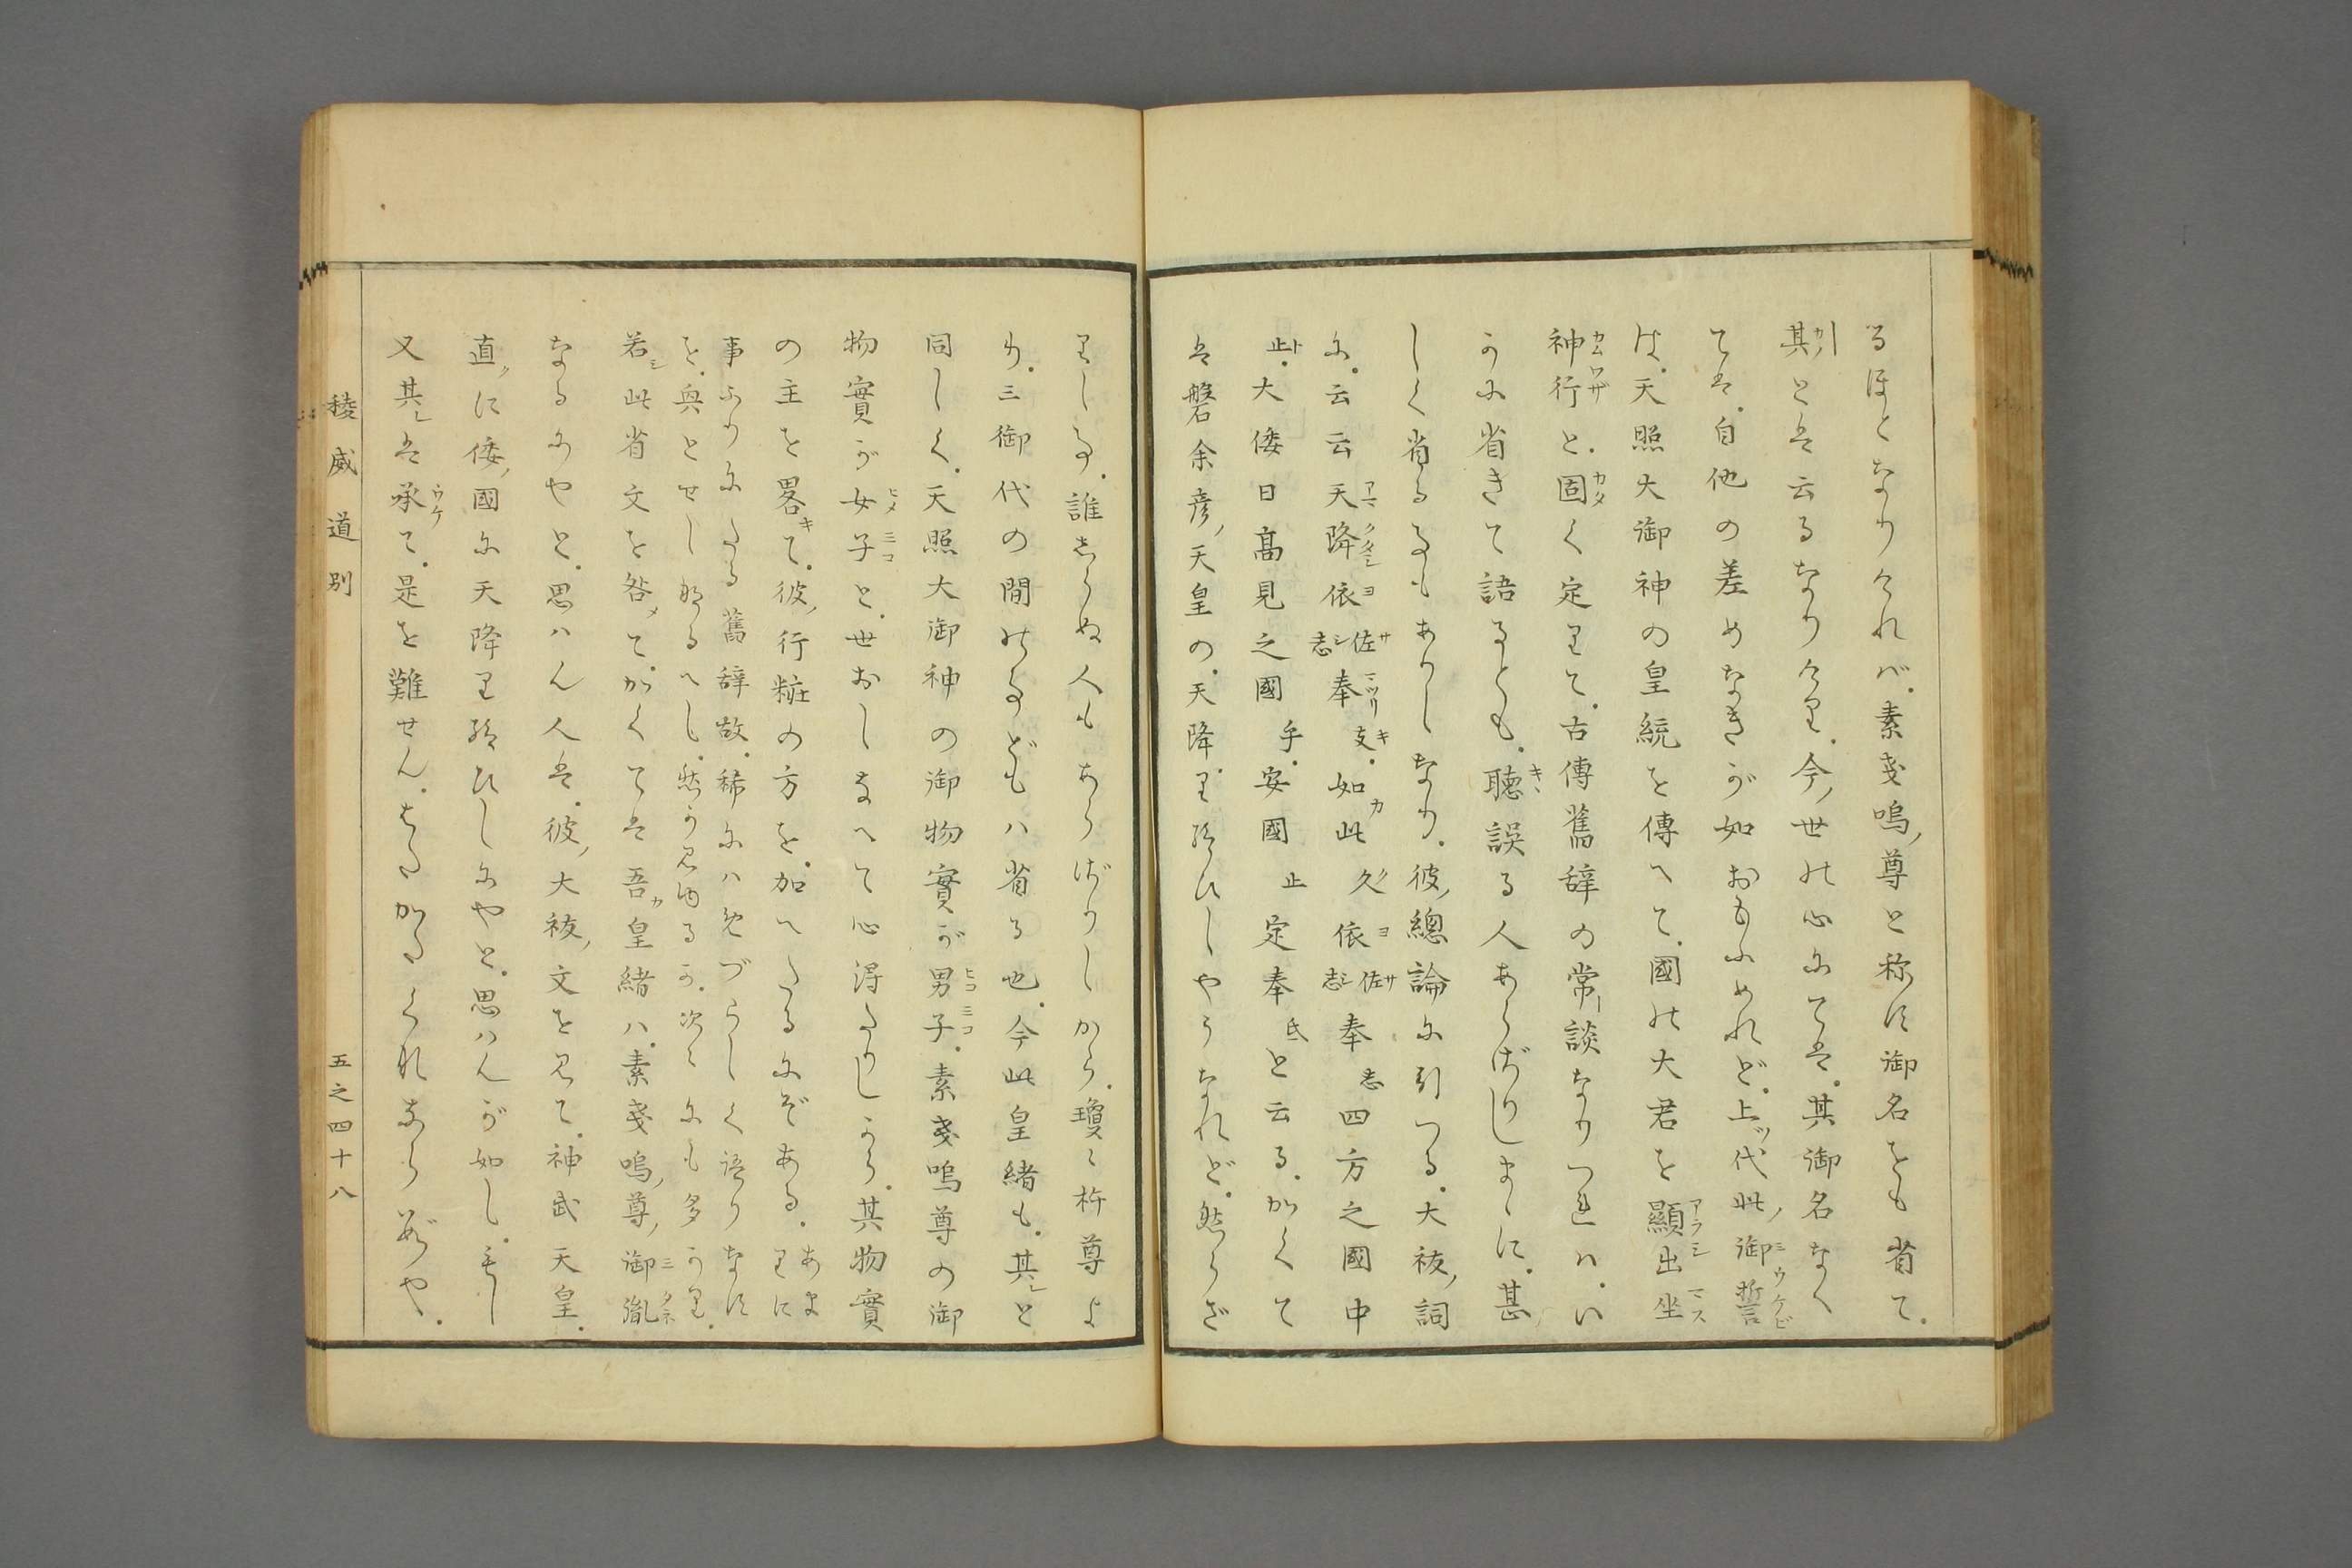 るほとなりけれバ。素戔嗚ノ尊と称す御名をも省て。
其カノとは云るなりけり。今ノ世の心にては。其御名なく
ては。自他の差めなきが如おもふめれど。上ツ代此ノ御誓ミウケビ
は。天照大御神の皇統を傳へて。國の大君を顯アラシ出坐マス
神行カムワザと。固カタく定りて。古傳舊辞の常談なりつれハ。い
かに省きて語るとも。聴キヽ誤る人あらざりしまゝに。甚
しく省る事もありしなり。彼ノ總論に引つる。大祓ノ詞
に。云云天アマ降クダシ依ヨ佐サ志シ奉マツリ支キ。如カ此久ク依ヨ佐サ志シ奉志四方之國中
止ト。大倭日高見之國乎。安國止定奉氐と云る。かくて
は磐余彦ノ天皇の。天降り給ひしやうなれど。然らざ
りし事。誰しらぬ人もあらざりしから。瓊々杵尊よ
り。三御代の間の事どもハ省る也。今此皇緒も。其レと
同しく。天照大御神の御物實が男ヒコ子ミコ。素戔嗚尊の御
物實が女ヒメ子ミコと。世おしなへて心得たりしから。其物實
の主を畧キて。彼ノ行粧の方を。加へたるにぞある。あまりに
事ふりにたる舊辞故。稀にハめづらしく語りなす
を。興とせし成るへし。然か見ゆるか。次々にも多かり。
若シ此省文を咎メて。かくては吾カ皇緒ハ。素戔嗚ノ尊ノ御ミ胤タネ
なるにやと。思ハん人は。彼ノ大祓ノ文を見て。神武天皇。
直ノに倭ノ國に天降り給ひしにやと。思ハんが如し。もし
又其レは承ウケて。是を難せん。はたかたくれならずや。
稜威道別
五之四十八